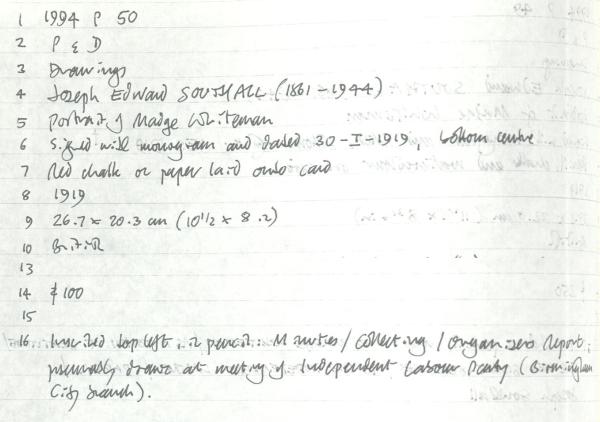 1 1994 P 50
2 P & D
3 Drawings
4 Joseph Edward SOUTHALL (1861-1944)
5 Portrait of Madge Whiteman
6 Signed with monogram and dated 30-I-1919, bottom centre
7 Red chalk on paper laid onto card
8 1919
9 26.7 x 20.3 cm (10 1/2 x 8 .2)
10 British
13
14 100
15
16 Inscribed top left, in pencil: Minutes / Collecting / Organizers Report;
presumably drawn at meeting of Independent Labour Party (Birmingham
City branch).